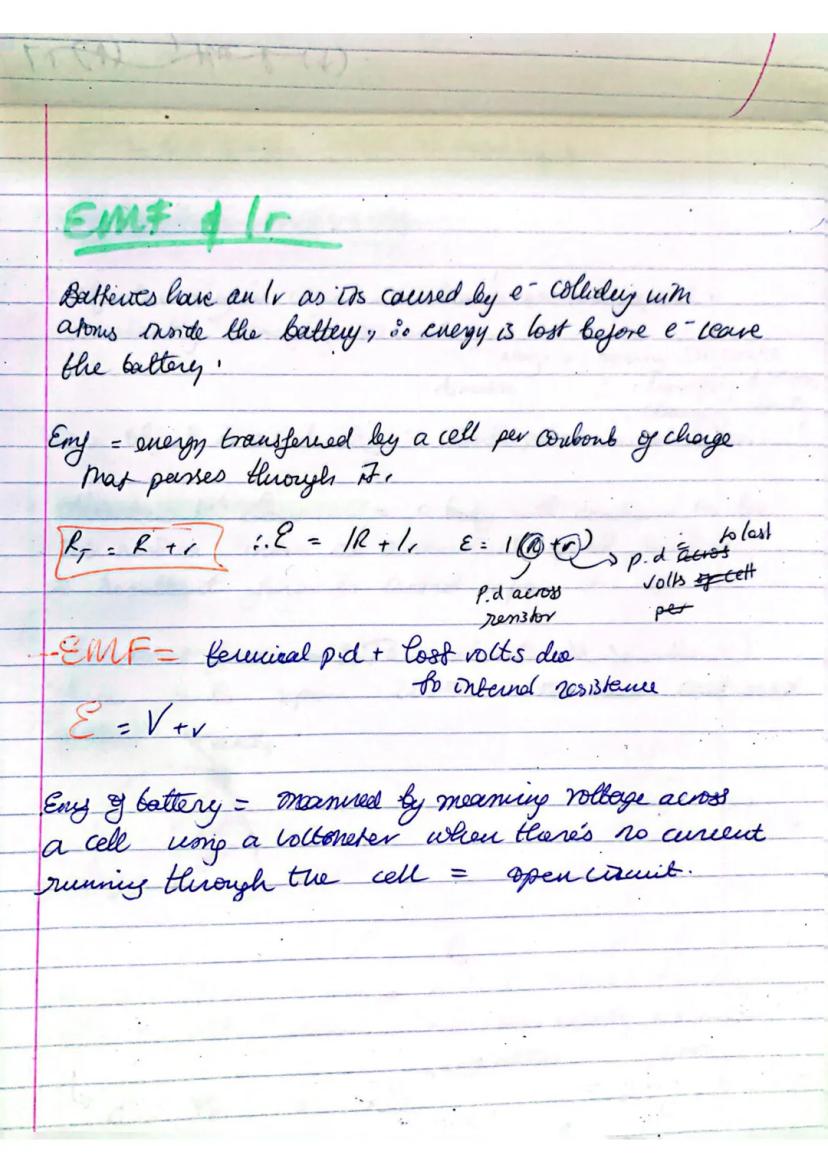 EMF & Ir
Batteries have an Ir as its caused by e⁻ colliding with
atoms inside the battery, ∴ energy is lost before e⁻ leave
the battery.
Emf = energy transferred by a cell per coulomb of charge
that passes through it.
R_T = R + r ∴ Ɛ = IR + Ir Ɛ = I(R+r) → p.d = ~~across~~ to lost
volts ~~of cell~~
~~per~~
P.d across
resistor
EMF = terminal p.d + lost volts due
to internal resistance
Ɛ = V + v
Emf of battery = measured by measuring voltage across
a cell using a voltmeter when there's no current
running through the cell = open circuit.